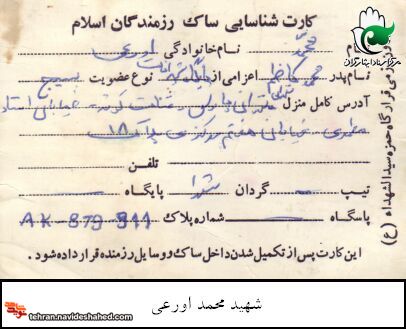 کارت شناسایی ساک رزمندگان اسلام
نام محمد نام خانوادگی اورعی
نام پدر محمد کاظم اعزامی از پایگاه نوع عضویت بسیج
آدرس کامل منزل تهرانپارس خیابان استاد
مطهری خیابان هفتم مرکزی پلاک ۱۸
تلفن
تیپ گردان شهدا پایگاه
پاسگاه شماره پلاک AK-879-911
این کارت پس از تکمیل شدن داخل ساک و وسایل رزمنده قرار داده شود.
قرارگاه حمزه سیدالشهداء (ع)
مرکز اسناد ایثارگران
tehran.navideshahed.com
شهید محمد اورعی